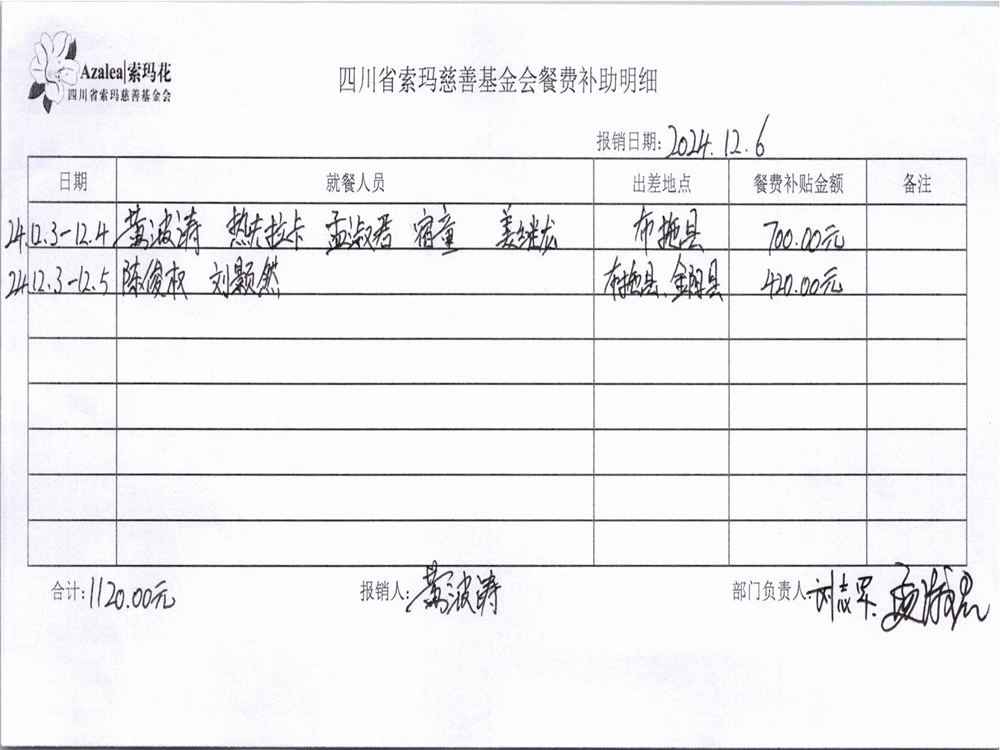 Azalea|索玛花
四川省索玛慈善基金会
四川省索玛慈善基金会餐费补助明细
报销日期: 2024.12.6
日期 就餐人员 出差地点 餐费补贴金额 备注
24.12.3-12.4 黄波涛 热夫拉卡 孟淑君 宿童 姜继龙 布拖县 700.00元
24.12.3-12.5 陈俊权 刘颢然 布拖县、金阳县 420.00元
合计: 1120.00元 报销人: 黄波涛 部门负责人: 刘志军